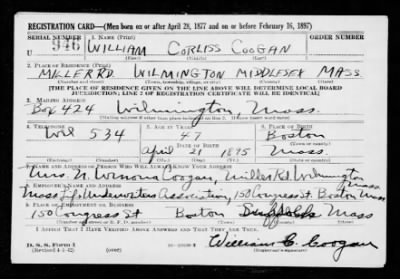 REGISTRATION CARD—(Men born on or after April 28, 1877 and on or before February 16, 1897)
SERIAL NUMBER 1. NAME (Print) ORDER NUMBER
U 946 WILLIAM CORLISS COOGAN
(First) (Middle) (Last)
2. PLACE OF RESIDENCE (Print)
MILLER RD. WILMINGTON MIDDLESEX MASS.
(Number and street) (Town, township, village, or city) (County) (State)
[THE PLACE OF RESIDENCE GIVEN ON THE LINE ABOVE WILL DETERMINE LOCAL BOARD
JURISDICTION; LINE 2 OF REGISTRATION CERTIFICATE WILL BE IDENTICAL]
3. MAILING ADDRESS
Box 424 Wilmington, Mass.
[Mailing address if other than place indicated on line 2. If same insert word same]
4. TELEPHONE 5. AGE IN YEARS 6. PLACE OF BIRTH
534 47 Boston
DATE OF BIRTH
April 21 1895 Mass
7. NAME AND ADDRESS OF PERSON WHO WILL ALWAYS KNOW YOUR ADDRESS
Mrs. N. Winona Coogan, Miller Rd. Wilmington Mass
8. EMPLOYER'S NAME AND ADDRESS
Mass Underwriters Association, 150 Congress St. Boston Mass
9. PLACE OF EMPLOYMENT OR BUSINESS
150 Congress St Boston Suffolk Mass
(Number and street or R. F. D. number) (Town) (County) (State)
I AFFIRM THAT I HAVE VERIFIED ABOVE ANSWERS AND THAT THEY ARE TRUE.
D. S. S. Form 1
(Revised 4-1-42) (over) William C. Coogan